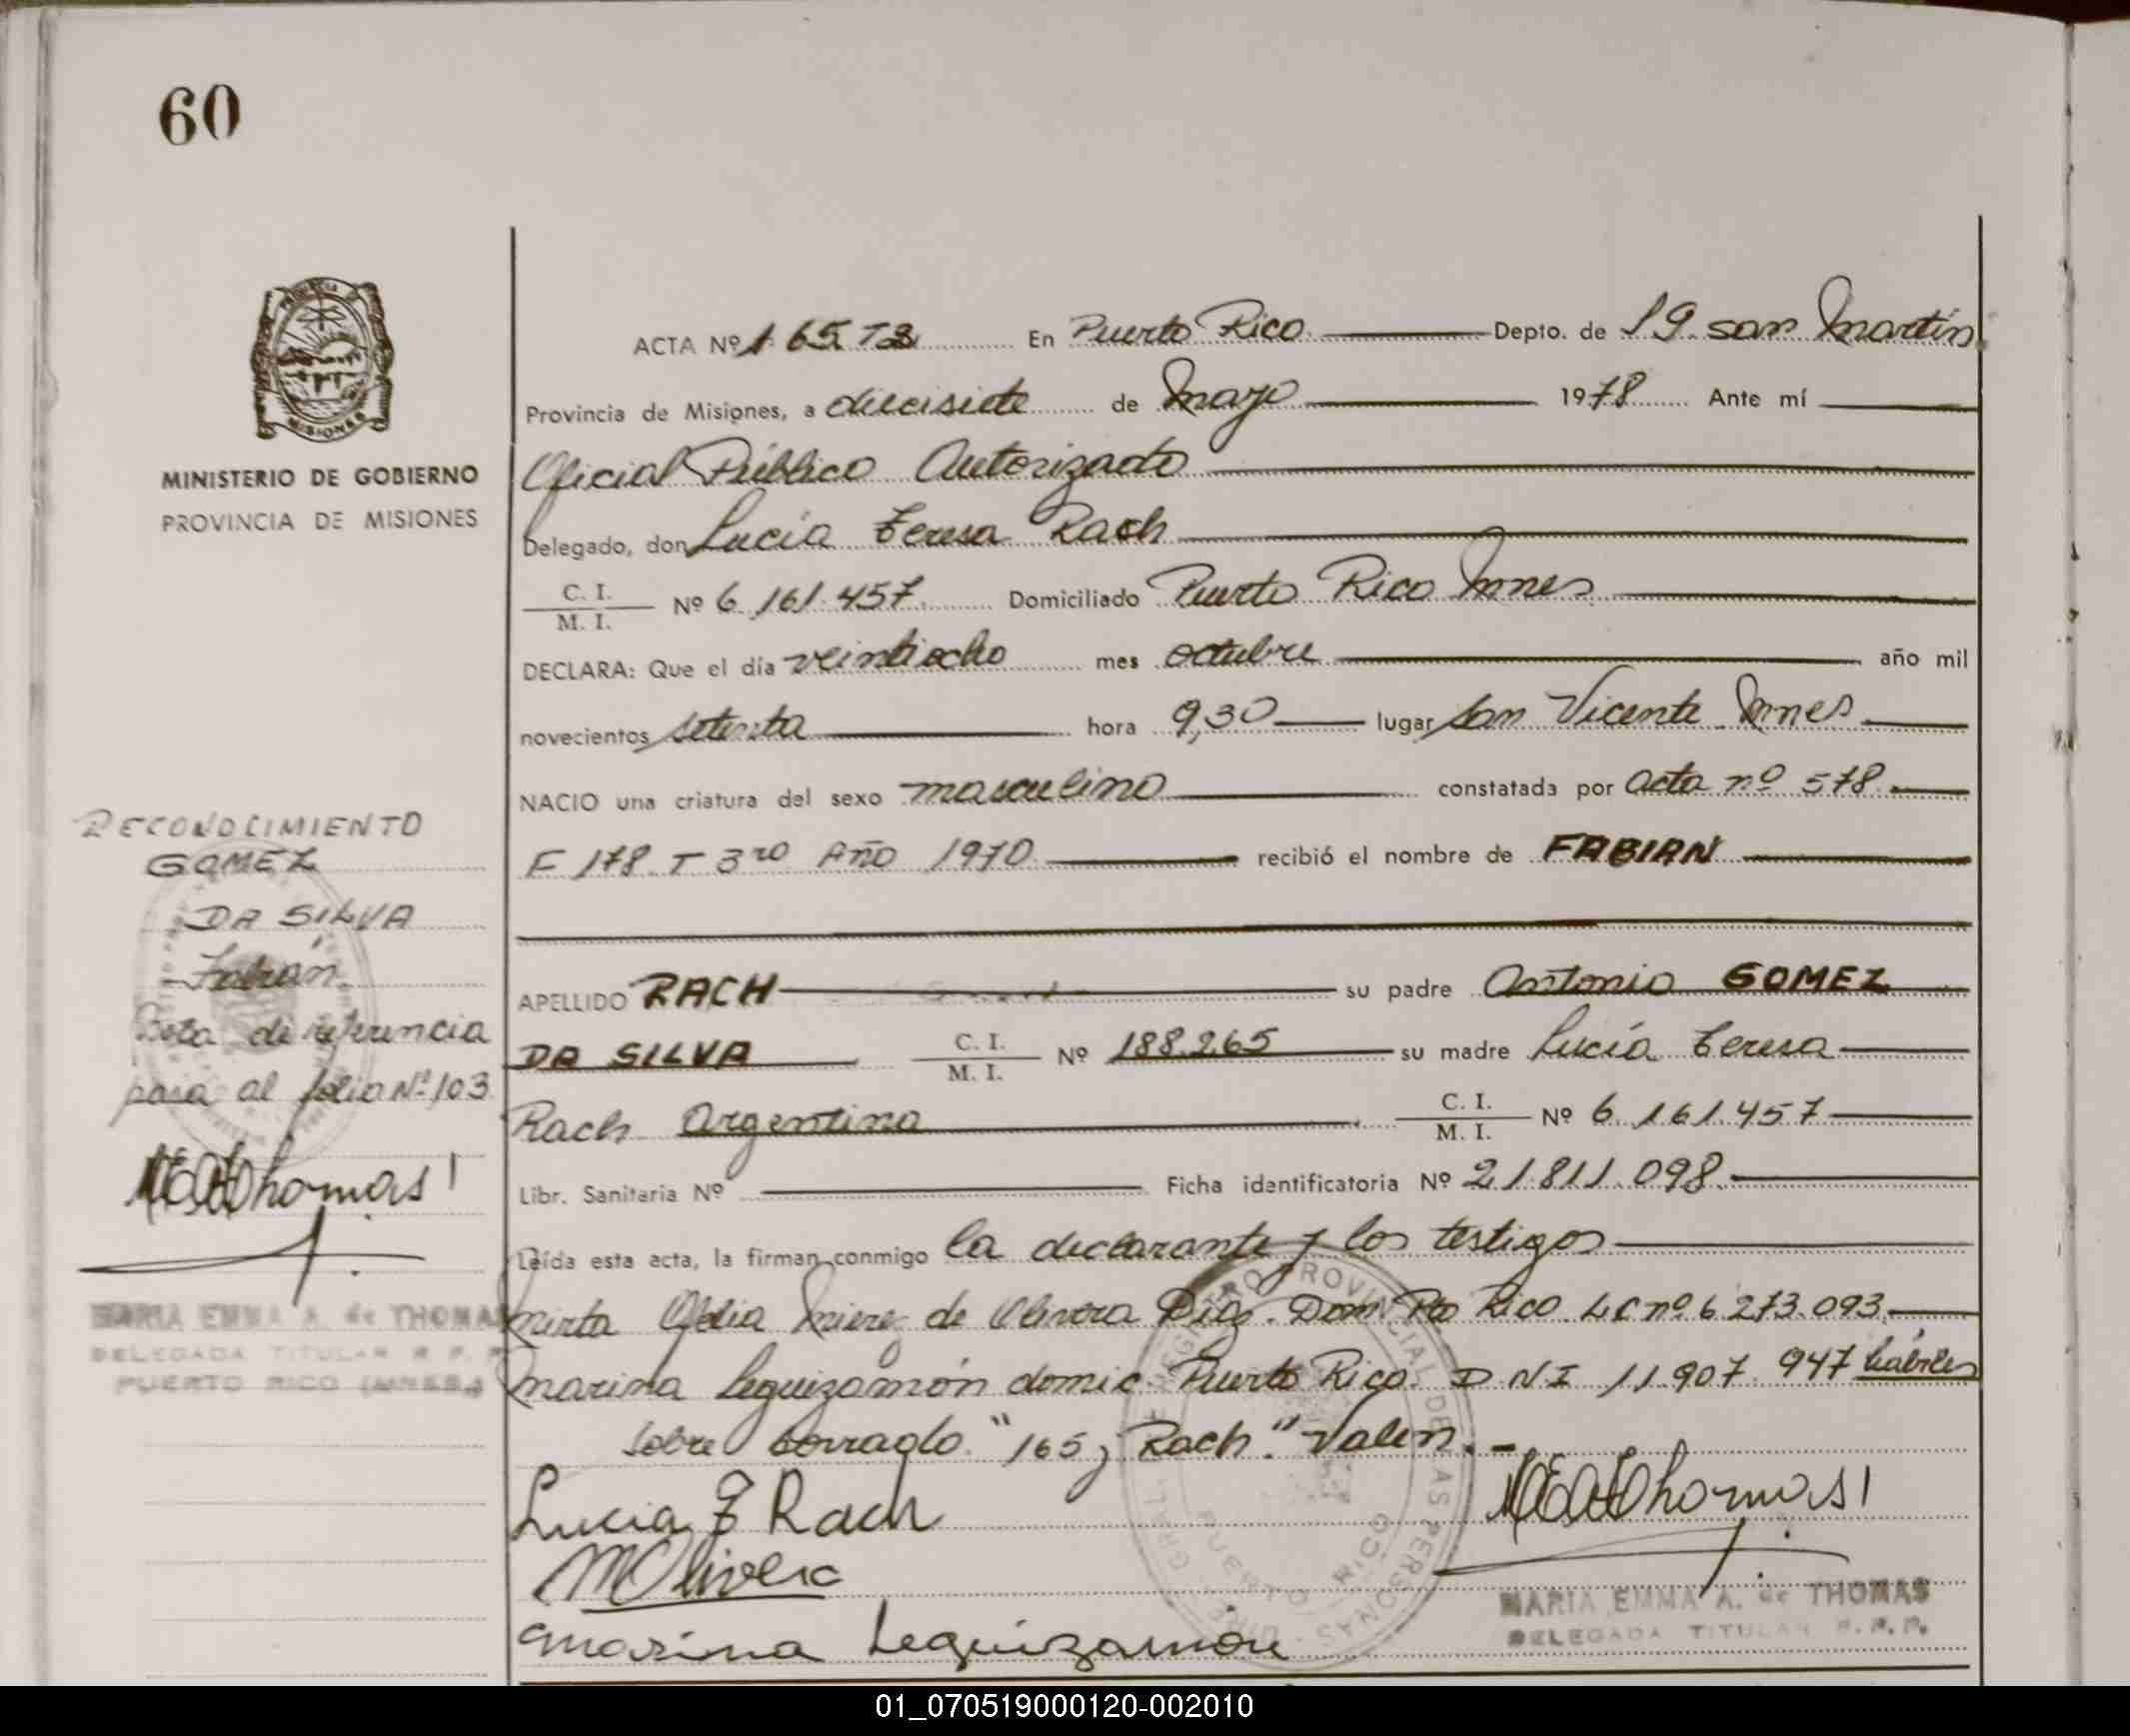 60
ACTA Nº 165 T3 En Puerto Rico Depto. de Lg. san Martín
Provincia de Misiones, a diecisiete de Mayo 1978 Ante mí
Oficial Público Autorizado
MINISTERIO DE GOBIERNO
PROVINCIA DE MISIONES
Delegado, don Lucía Teresa Rach
C. I. / M. I. Nº 6.161.457 Domiciliado Puerto Rico Mnes
DECLARA: Que el día veintiocho mes octubre año mil
novecientos setenta hora 9,30 lugar San Vicente Mnes
NACIO una criatura del sexo masculino constatada por acta nº 578
F 178 T 3ro Año 1970 recibió el nombre de FABIAN
RECONOCIMIENTO
GOMEZ
DA SILVA
Fabián
Nota de referencia
pasa al folio Nº 103
APELLIDO RACH su padre Antonio GOMEZ
DA SILVA C. I. / M. I. Nº 188.265 su madre Lucía Teresa
Rach Argentina C. I. / M. I. Nº 6.161.457
Libr. Sanitaria Nº Ficha identificatoria Nº 21.811.098
Leída esta acta, la firman conmigo la declarante y los testigos
Mirta Ofelia de Olivera Dig. Dom. Pto Rico LC nº 6.273.093
Marina Leguizamón domic Puerto Rico D N I 11.907.947 hábiles
Sobre borrado "165; Rach." Valen.-
MARIA EMMA A. de THOMAS
DELEGADA TITULAR R. P. P.
PUERTO RICO (MNES.)
Lucia T Rach
MOlivera
Marina Leguizamón
MEAdThomas
MARIA EMMA A. de THOMAS
DELEGADA TITULAR R. P. P.
REGISTRO PROVINCIAL DE LAS PERSONAS
PUERTO RICO
01_070519000120-002010